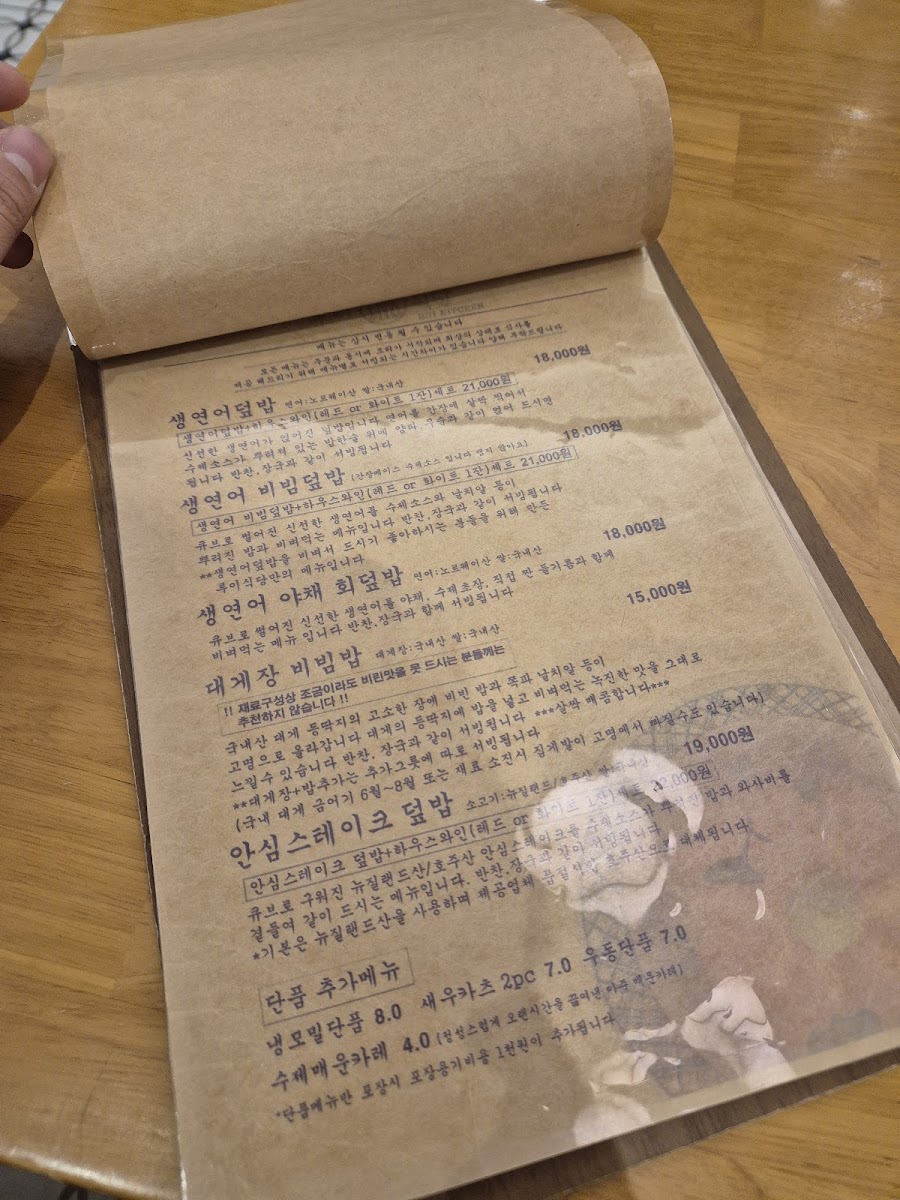 메뉴는 상시 변동 될 수 있습니다
모든 메뉴는 주문과 동시에 조리가 시작되며 최상의 상태로 식사를
제공 해드리기 위해 메뉴별로 서빙되는 시간차이가 있습니다 양해 부탁드립니다
생연어덮밥 연어:노르웨이산 쌀:국내산 18,000원
생연어덮밥+하우스와인(레드 or 화이트 1잔)세트 21,000원
신선한 생연어가 얹어진 덮밥입니다 연어를 간장에 살짝 찍어서
수제소스가 뿌려져 있는 밥한술 위에 양파, 무순과 같이 얹어 드시면
됩니다 반찬,장국과 같이 서빙됩니다
생연어 비빔덮밥 (간장베이스 수제소스 입니다 맵지 않아요) 18,000원
생연어 비빔덮밥+하우스와인(레드 or 화이트 1잔)세트 21,000원
큐브로 썰어진 신선한 생연어를 수제소스와 날치알 등이
뿌려진 밥과 비벼먹는 메뉴입니다 반찬,장국과 같이 서빙됩니다
**생연어덮밥을 비벼서 드시기 좋아하시는 분들을 위해 만든
루이식당만의 메뉴입니다
생연어 야채 회덮밥 연어:노르웨이산 쌀:국내산 18,000원
큐브로 썰어진 신선한 생연어를 야채, 수제초장, 직접 짠 들기름과 함께
비벼먹는 메뉴 입니다 반찬,장국과 함께 서빙됩니다
대게장 비빔밥 대게장:국내산 쌀:국내산 15,000원
!! 재료구성상 조금이라도 비린맛을 못 드시는 분들께는
추천하지 않습니다 !!
국내산 대게 등딱지의 고소한 장에 비빈 밥과 쪽파 날치알 등이
고명으로 올라갑니다 대게의 등딱지에 밥을 넣고 비벼먹는 녹진한 맛을 그대로
느낄수 있습니다 반찬, 장국과 같이 서빙됩니다 ***살짝 매콤합니다***
**대게장+밥추가는 추가그릇에 따로 서빙됩니다
(국내 대게 금어기 6월~8월 또는 재료 소진시 집게발이 고명에서 빠질수도 있습니다)
안심스테이크 덮밥 소고기:뉴질랜드/호주산 쌀:국내산 19,000원
안심스테이크 덮밥+하우스와인(레드 or 화이트 1잔)세트 22,000원
큐브로 구워진 뉴질랜드산/호주산 안심스테이크를 수제소스가 뿌려진 밥과 와사비를
곁들여 같이 드시는 메뉴입니다. 반찬,장국과 같이 서빙됩니다
*기본은 뉴질랜드산을 사용하며 제공업체 품절시만 호주산으로 대체됩니다
단품 추가메뉴
냉모밀단품 8.0 새우카츠 2pc 7.0 우동단품 7.0
수제매운카레 4.0 (정성스럽게 오랜시간을 끓여낸 아주 매운카레)
*단품메뉴만 포장시 포장용기비용 1천원이 추가됩니다